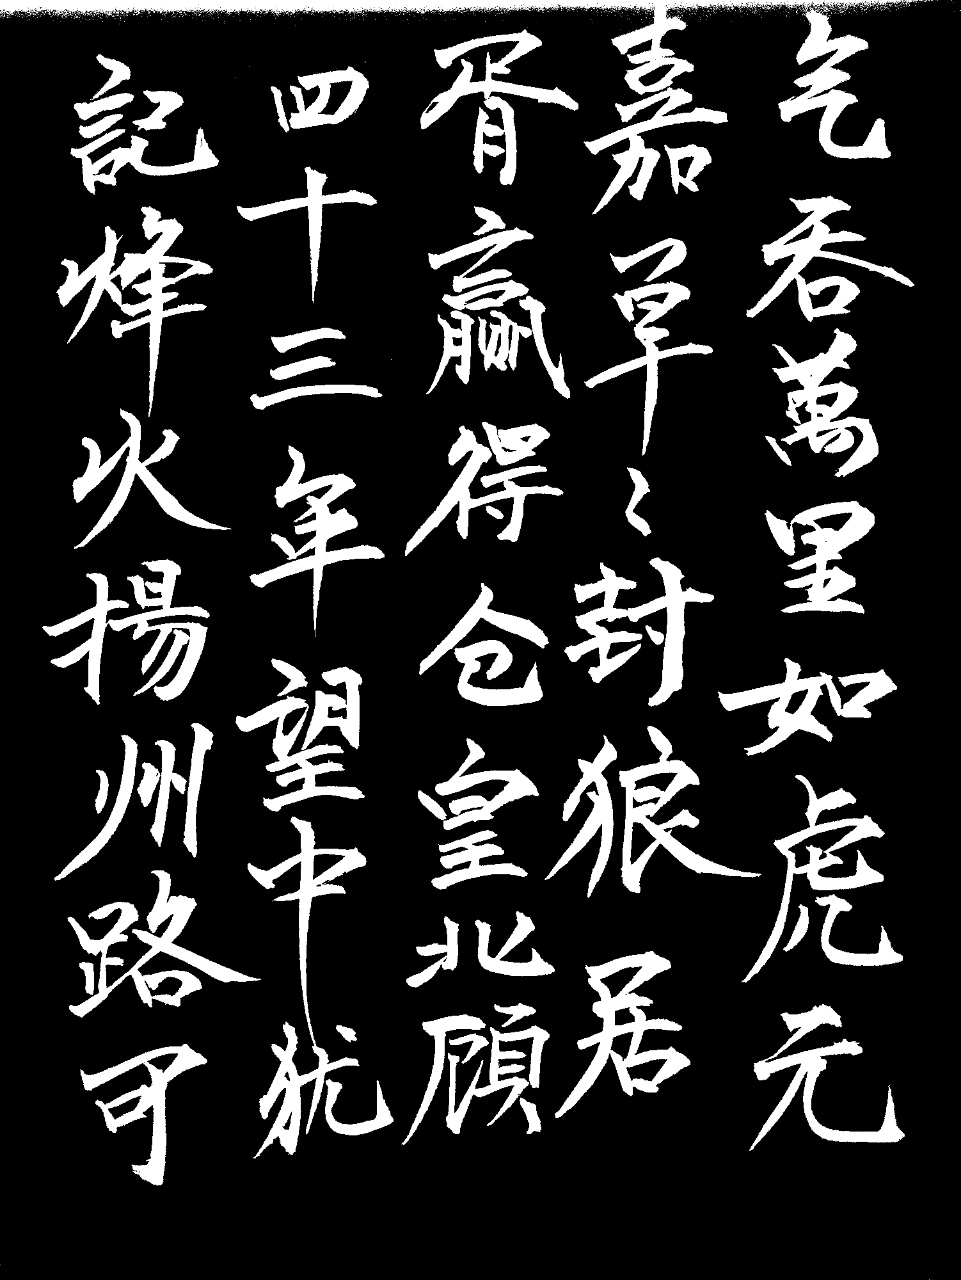 气吞萬里如虎元
嘉草〻封狼居
胥贏得仓皇北顧
四十三年望中犹
記烽火揚州路可